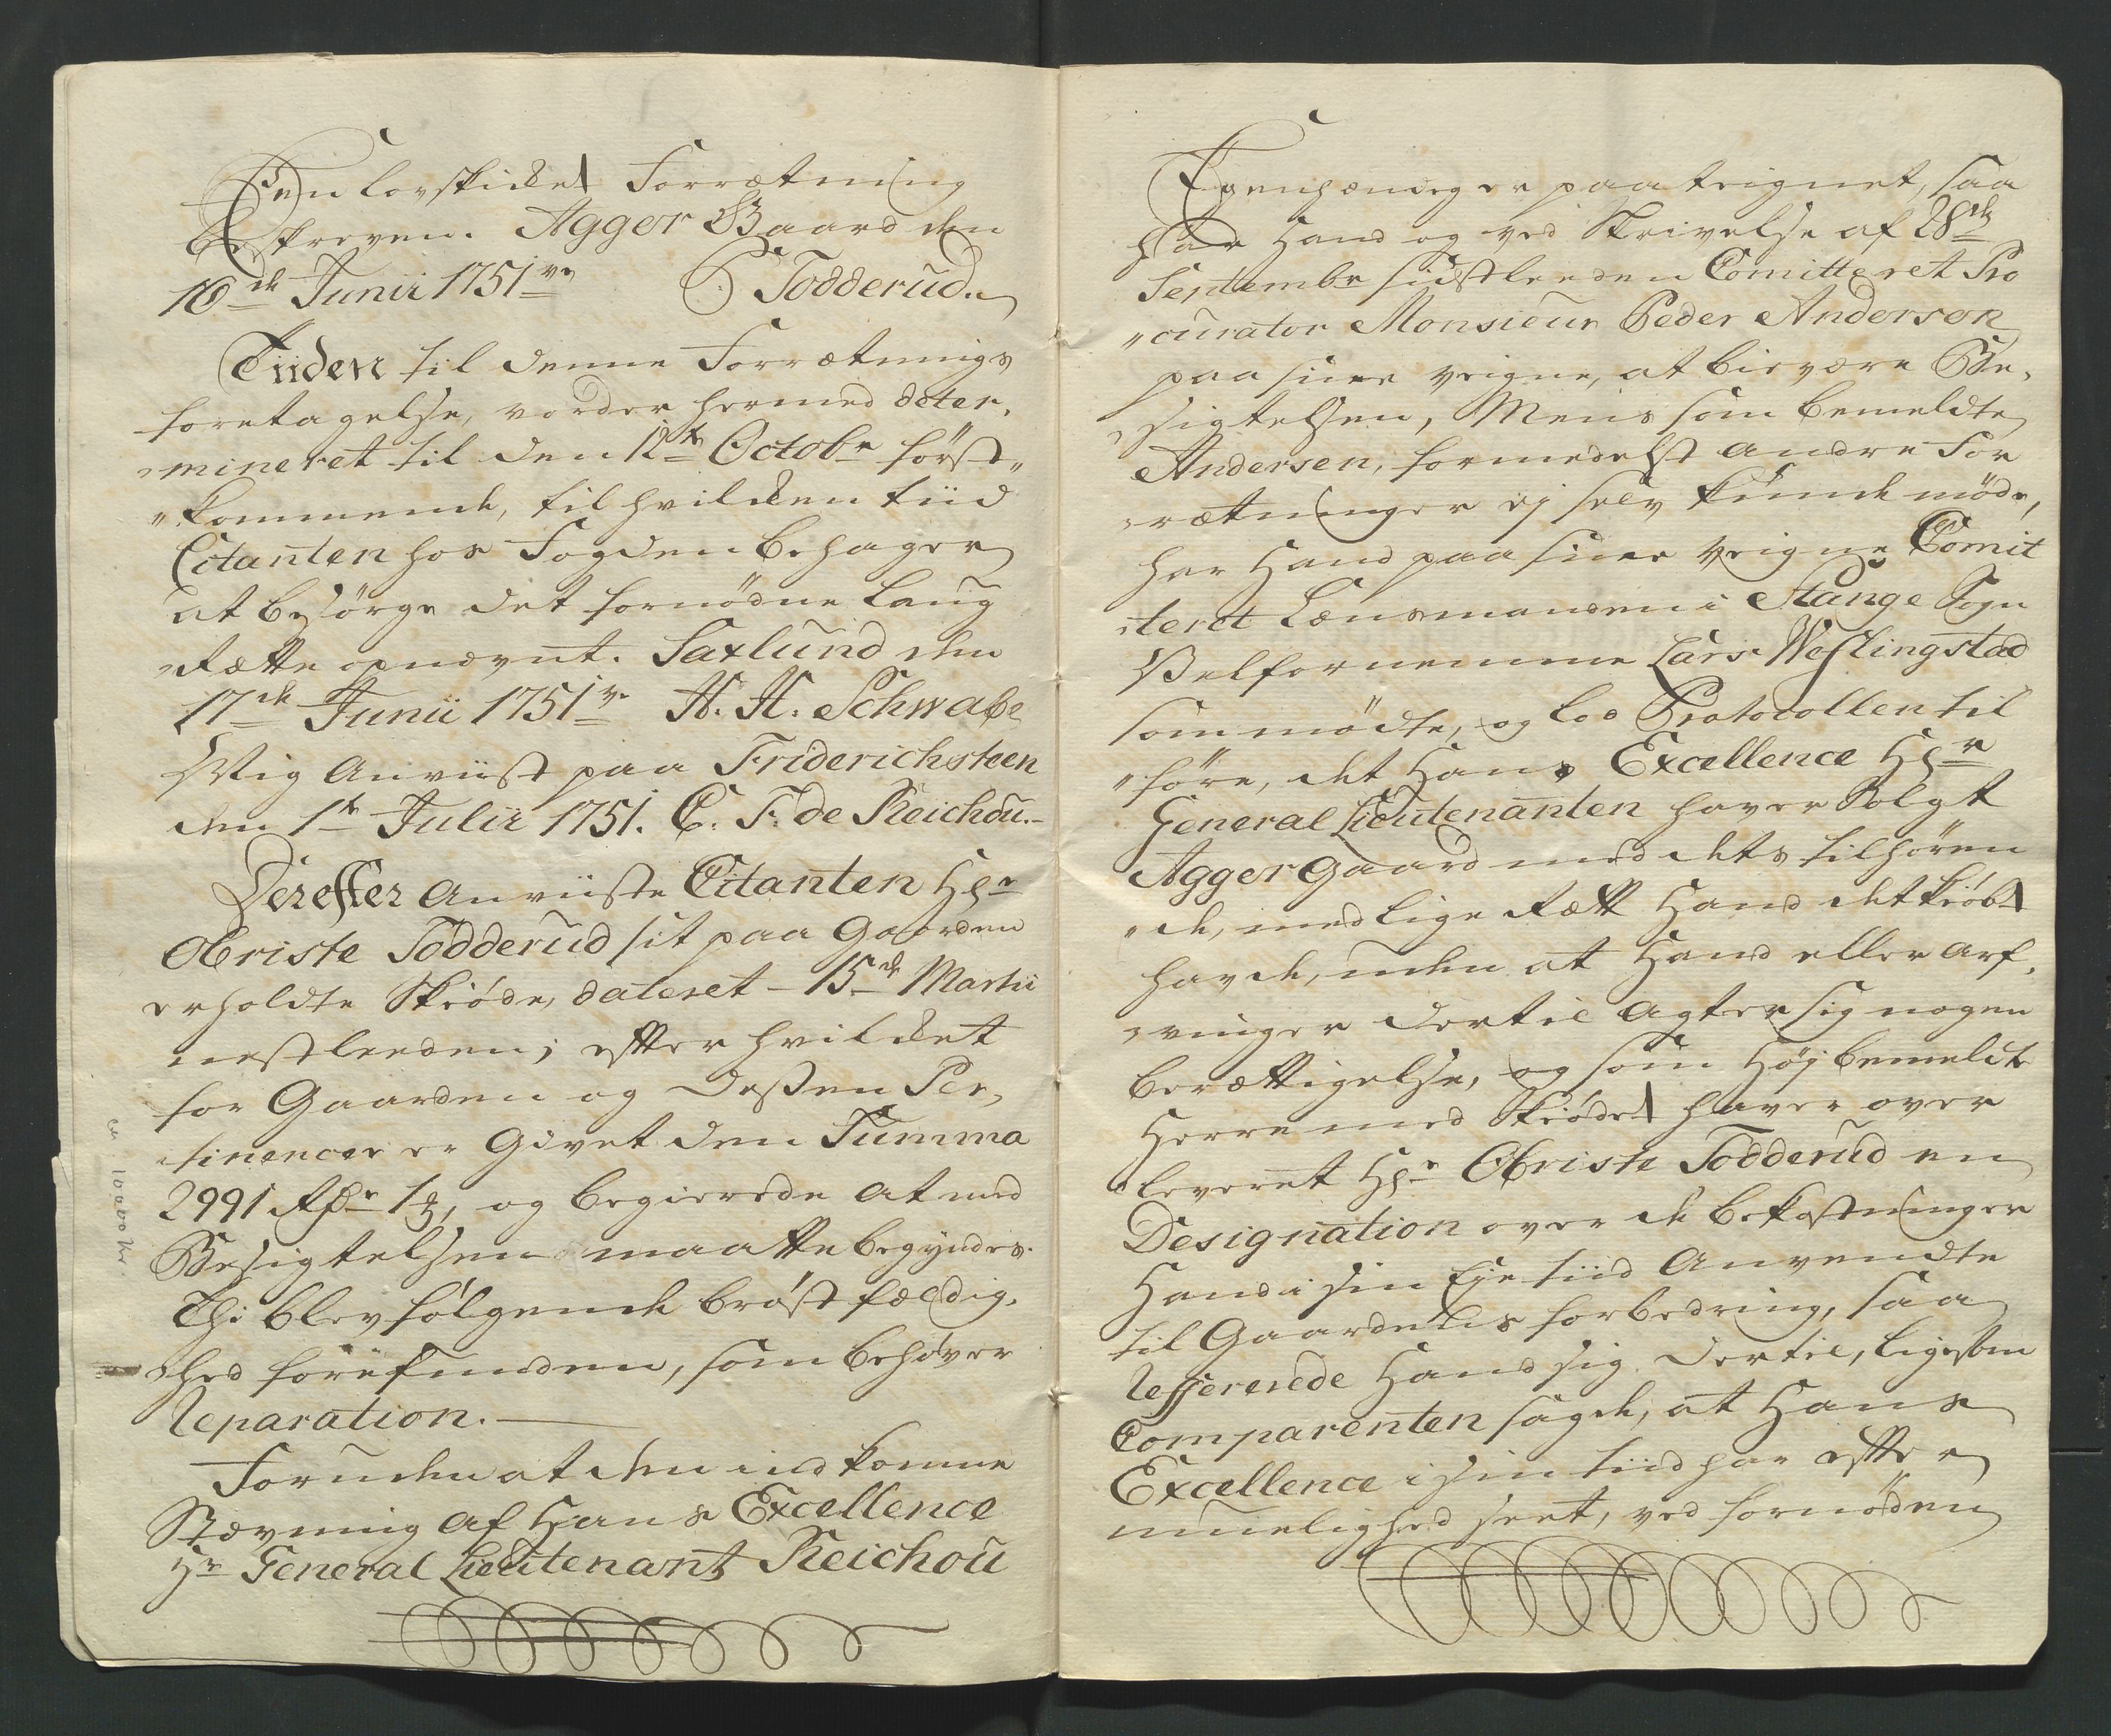 Een lovskicket Forrætning
beskreven. Agger Gaard den
16de Junii 1751ve P: Todderud.
Tiiden til denne Forrætnings
foretagelse, vorder hermed deter,
„mineret til den 12te Octobr först„
„kommende, til hvilcken tiid
Citanten hos Fogden behager
at besörge det fornödne Laug
„Rætte opnævnt. Saxlund den
17de Junii 1751ve H. H. Schwabe
Mig Anviist paa Friderichsteen
den 1te Julii 1751. C. F. de Reichou.
Derefter Anviiste Citanten Hr
Obriste Todderud sit paa Gaarden
erholdte Skiöde, dateret 15de Martii
nestleeden; efter hvilcket
for Gaarden og Dessen Per„
„tinencer er Givet den Summa
2991 Rdr 1 ß, og begierede at med
Besigtelsen maatte begyndes.
Thi blev fölgende bröstfældig„
„hed forefunden, som behöver
Reparation.
Foruden at den indkomne
Stævning af Hans Excellence
Hr General Lieutenant Reichou
Egenhændig er paateignet, saa
har Hand og ved Skrivelse af 28de
Septembr sidstleeden Comitteret Pro
„curator Monsieur Peder Andersen
paa sine Veigne, at bievære Be„
„sigtelsen, Mens som bemeldte
Andersen, formedelst andre For
„rætninger ej selv kunde möde,
har Hand paa sine Veigne Comit
„teret Lænsmanden i Stange Sogn
Velfornemme Lars Westlingstad
som mödte, og lod Protocollen til
„före, det Hans Excellence Hr
General Lieutenanten haver Solgt
Agger Gaard med dets tilhören
„de, med lige Rætt Hand det kiöbt
havde, uden at Hand eller Arf„
„vinger dertil Agter sig nogen
berættigelse, og som Höj bemeldte
Herre med Skiödet haver over
„leveret Hr Obriste Todderud en
Designation over de bekostninger
Hand i sin Eje tiid Anvendte
til Gaardens forbedring, saa
Refererede Hand sig dertil, ligesom
Comparenten sagde, at Hans
Excellence i sin tiid har efter
muelighed seet, ved fornöden